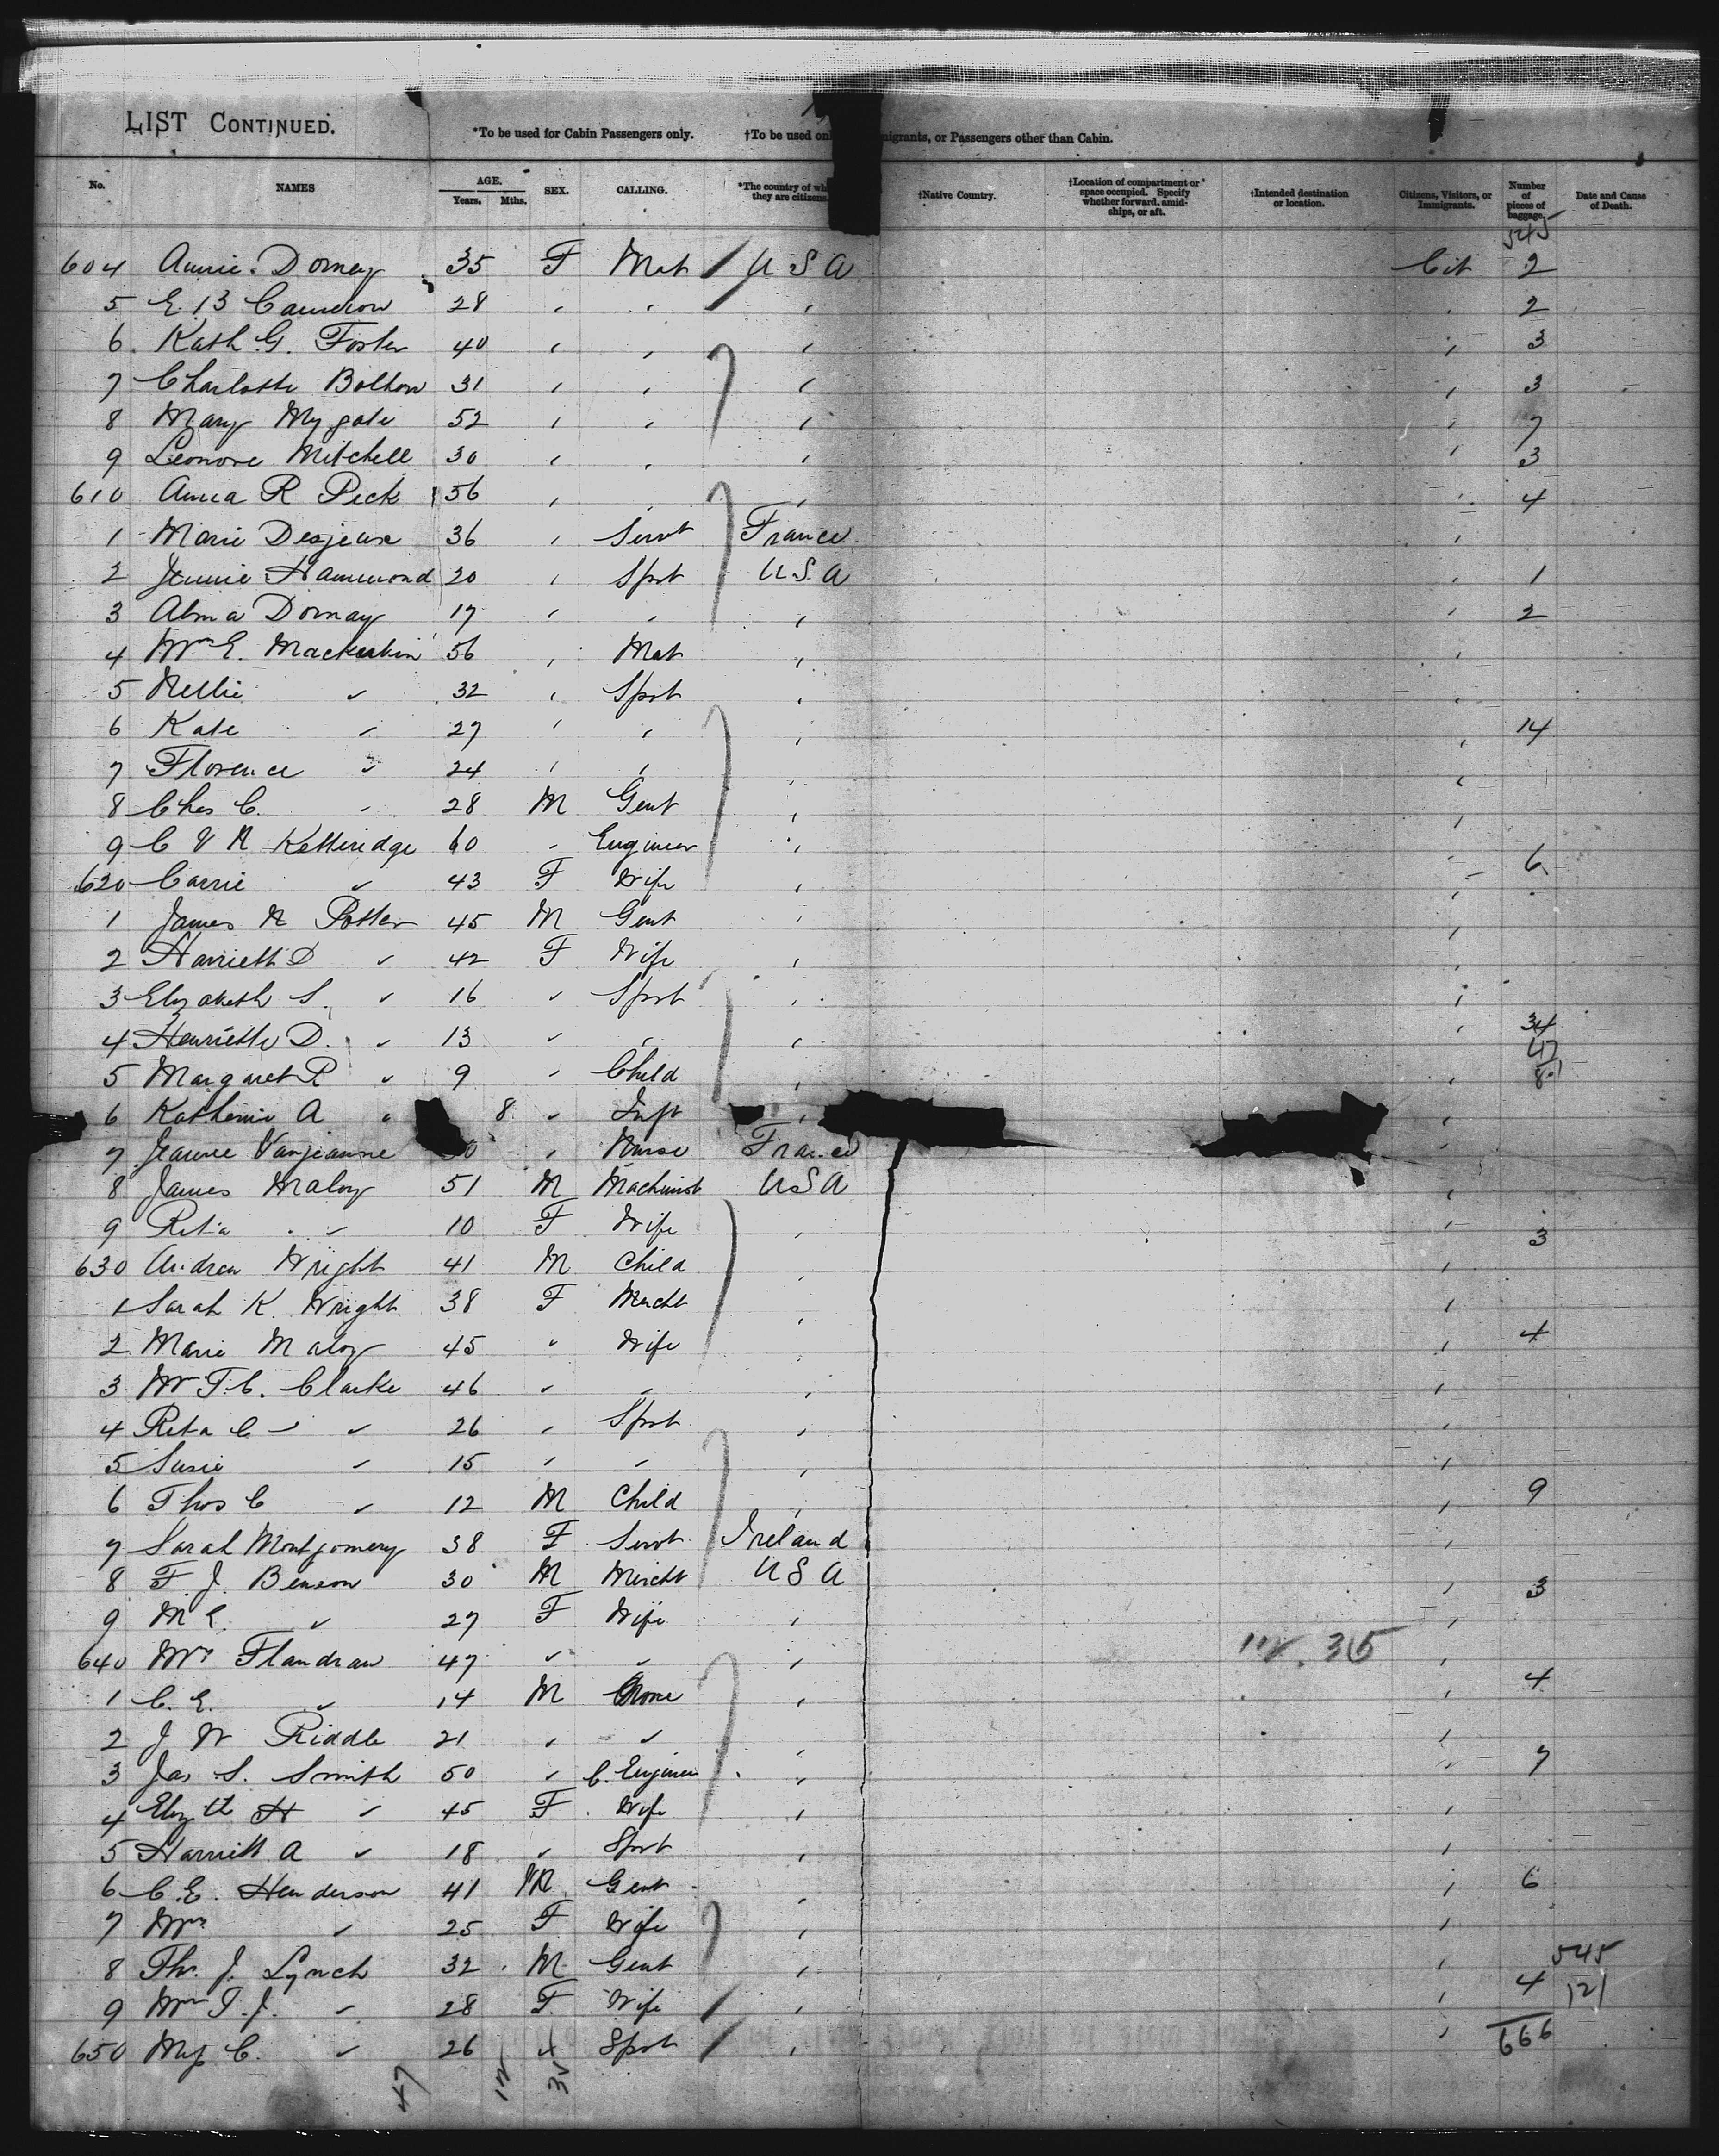 LIST CONTINUED.
*To be used for Cabin Passengers only. †To be used onl migrants, or Passengers other than Cabin.
No. NAMES AGE. Years. Mths. SEX. CALLING. *The country of wh they are citizens. †Native Country. †Location of compartment or space occupied. Specify whether forward, amid-ships, or aft. †Intended destination or location. Citizens, Visitors, or Immigrants. Number of pieces of baggage. Date and Cause of Death.
545
604 Annie Dornay 35 F Mat U S A Cit 2
5 E. B Cameron 28 2
6 Kath G. Foster 40 3
7 Charlotte Bolton 31 3
8 Mary Mygate 52 7
9 Leonore Mitchell 30 3
610 Anna R Peck 56 4
1 Marie Desjeux 36 Servt France
2 Jennie Hammond 20 Spst U.S.A 1
3 Alma Dornay 17 2
4 Mrs E. 56 Mat
5 Nellie " 32 Spst
6 Kate " 27 14
7 Florence " 24
8 Chas C. " 28 M Gent
9 C V R Ketteridge 60 Engineer 6
620 Carrie " 43 F Wife
1 James N Potter 45 M Gent
2 Harriett D " 42 F Wife
3 Elizabeth S. " 16 " Spst
4 Henriette D. " 13 " 34
47
5 Margaret R " 9 " Child 81
6 Katherine A " 8 " Inft
7 Jeanne 0 Nurse France
8 James Maloy 51 M Machinist U S A
9 Rita " 10 F Wife 3
630 Andrew Wright 41 M Child
1 Sarah K. Wright 38 F Mercht
2 Marie Maloy 45 " Wife 4
3 Mrs T. C. Clarke 46 " "
4 Rita C " 26 " Spst
5 Susie " 15 " "
6 Thos C " 12 M Child 9
7 Sarah Montgomery 38 F Servt Ireland
8 F. J. Benson 30 M Mercht U S A 3
9 M E. " 27 F Wife
640 Mrs Flandrau 47 " " 315
1 C. E. " 14 M None 4
2 J W Riddle 21 " "
3 Jas S. Smith 50 " C. Engineer 7
4 Elizth H " 45 F Wife
5 Harriett A " 18 " Spst
6 C. E. Henderson 41 M Gent 6
7 Mrs " 25 F Wife
8 Thos. J. Lynch 32 M Gent 545
9 Mrs T. J. " 28 F Wife 4 121
650 Miss C. " 26 Spst 666
47